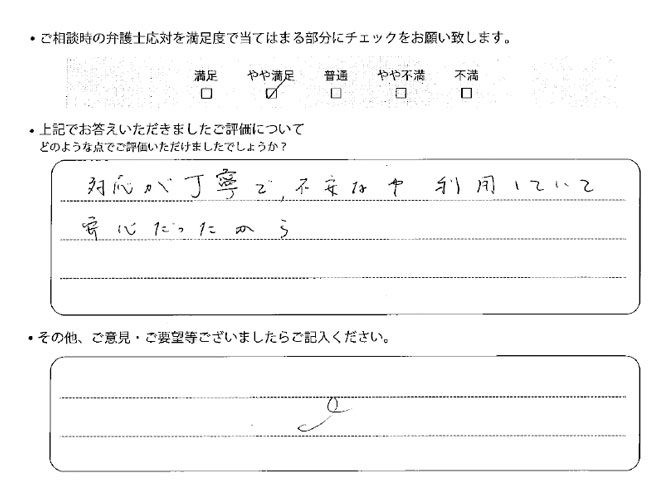 ・ご相談時の弁護士応対を満足度で当てはまる部分にチェックをお願い致します。
満足 やや満足 普通 やや不満 不満
□ ☑ □ □ □
・上記でお答えいただきましたご評価について
どのような点でご評価いただけましたでしょうか？
対応が丁寧で、不安な中利用していて
安心だったから
・その他、ご意見・ご要望等ございましたらご記入ください。